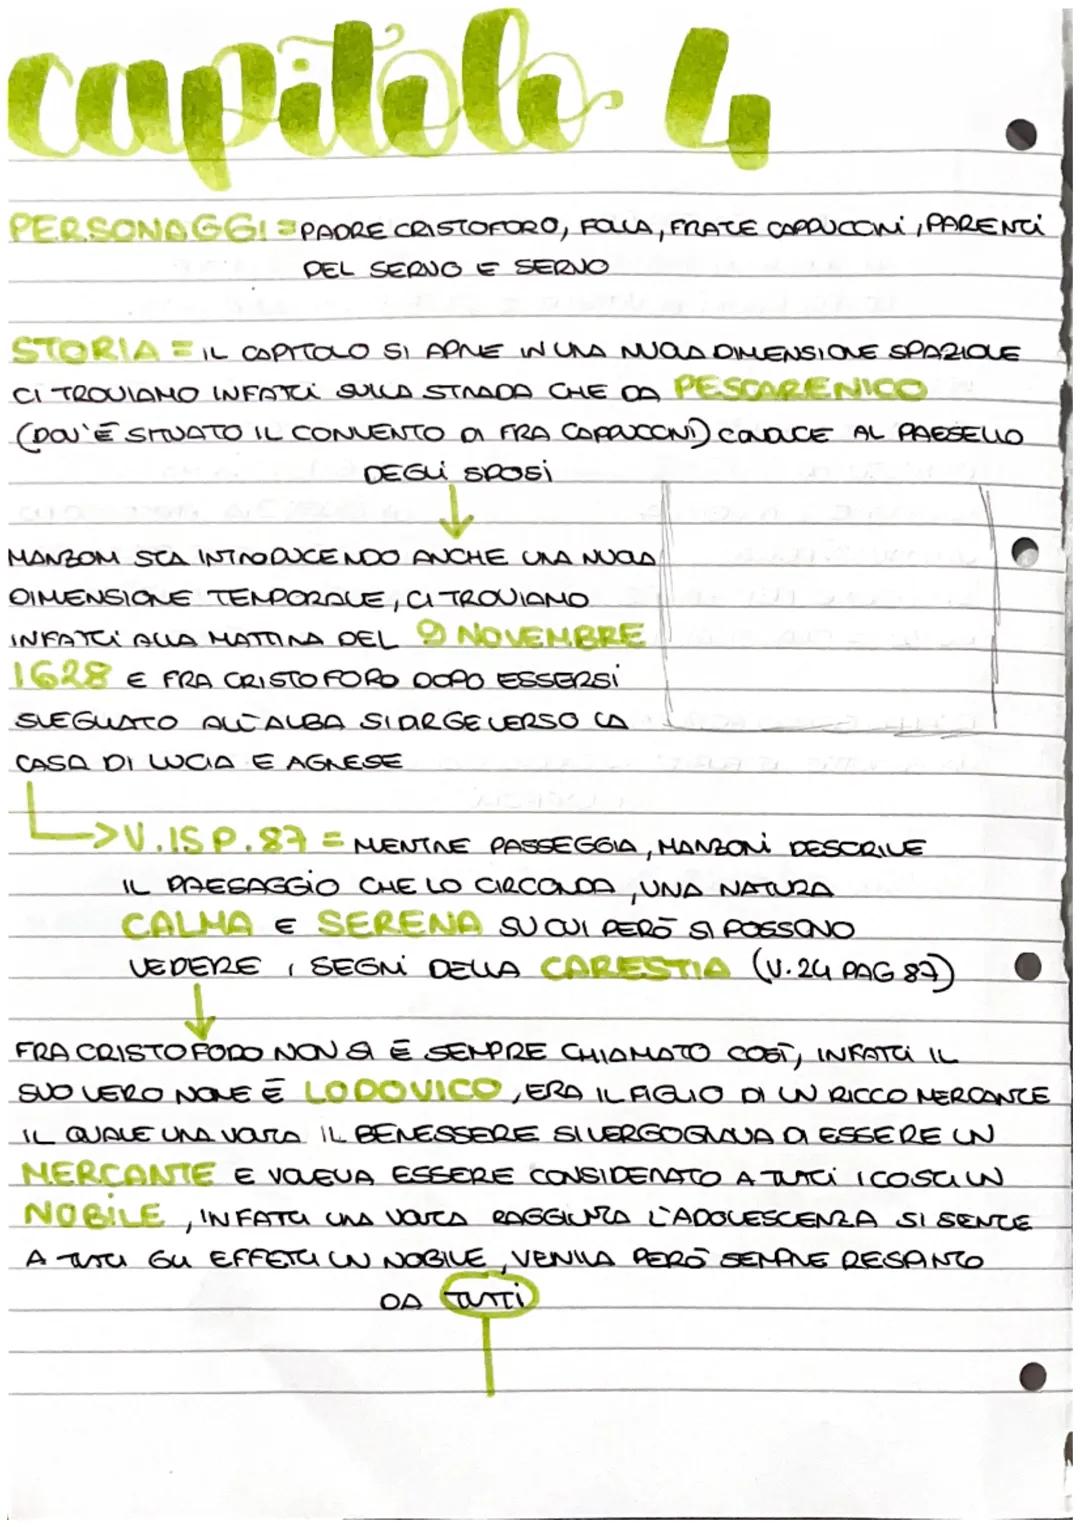 capitolo 4
PERSONAGGI = PADRE CRISTOFORO, FOLLA, FRATE CAPPUCCINI, PARENTI
DEL SERVO E SERVO
STORIA = IL CAPITOLO SI APRE IN UNA NUOVA DIMENSIONE SPAZIALE
CI TROVIAMO INFATTI SULLA STRADA CHE DA PESCARENICO
(DOV'È SITUATO IL CONVENTO DI FRA CAPPUCCINI) CONDUCE AL PAESELLO
DEGLI SPOSI
MANZONI STA INTRODUCENDO ANCHE UNA NUOVA
DIMENSIONE TEMPORALE, CI TROVIAMO
INFATTI ALLA MATTINA DEL 9 NOVEMBRE
1628 E FRA CRISTOFORO DOPO ESSERSI
SVEGLIATO ALL'ALBA SI DIRGE VERSO LA
CASA DI LUCIA E AGNESE
V.1S P.87 = MENTRE PASSEGGIA, MANZONI DESCRIVE
IL PAESAGGIO CHE LO CIRCONDA, UNA NATURA
CALMA E SERENA SU CUI PERÒ SI POSSONO
VEDERE I SEGNI DELLA CARESTIA (V.24 PAG 87)
FRA CRISTOFORO NON SI È SEMPRE CHIAMATO COSÌ, INFATTI IL
SUO VERO NOME È LODOVICO, ERA IL FIGLIO DI UN RICCO MERCANTE
IL QUALE UNA VOLTA IL BENESSERE SI VERGOGNAVA DI ESSERE UN
MERCANTE E VOLEVA ESSERE CONSIDERATO A TUTTI I COSTI UN
NOBILE, INFATTI UNA VOLTA RAGGIUNTA L'ADOLESCENZA SI SENTE
A TUTTI GLI EFFETTI UN NOBILE, VENIVA PERÒ SEMPRE RESPINTO
DA TUTTI